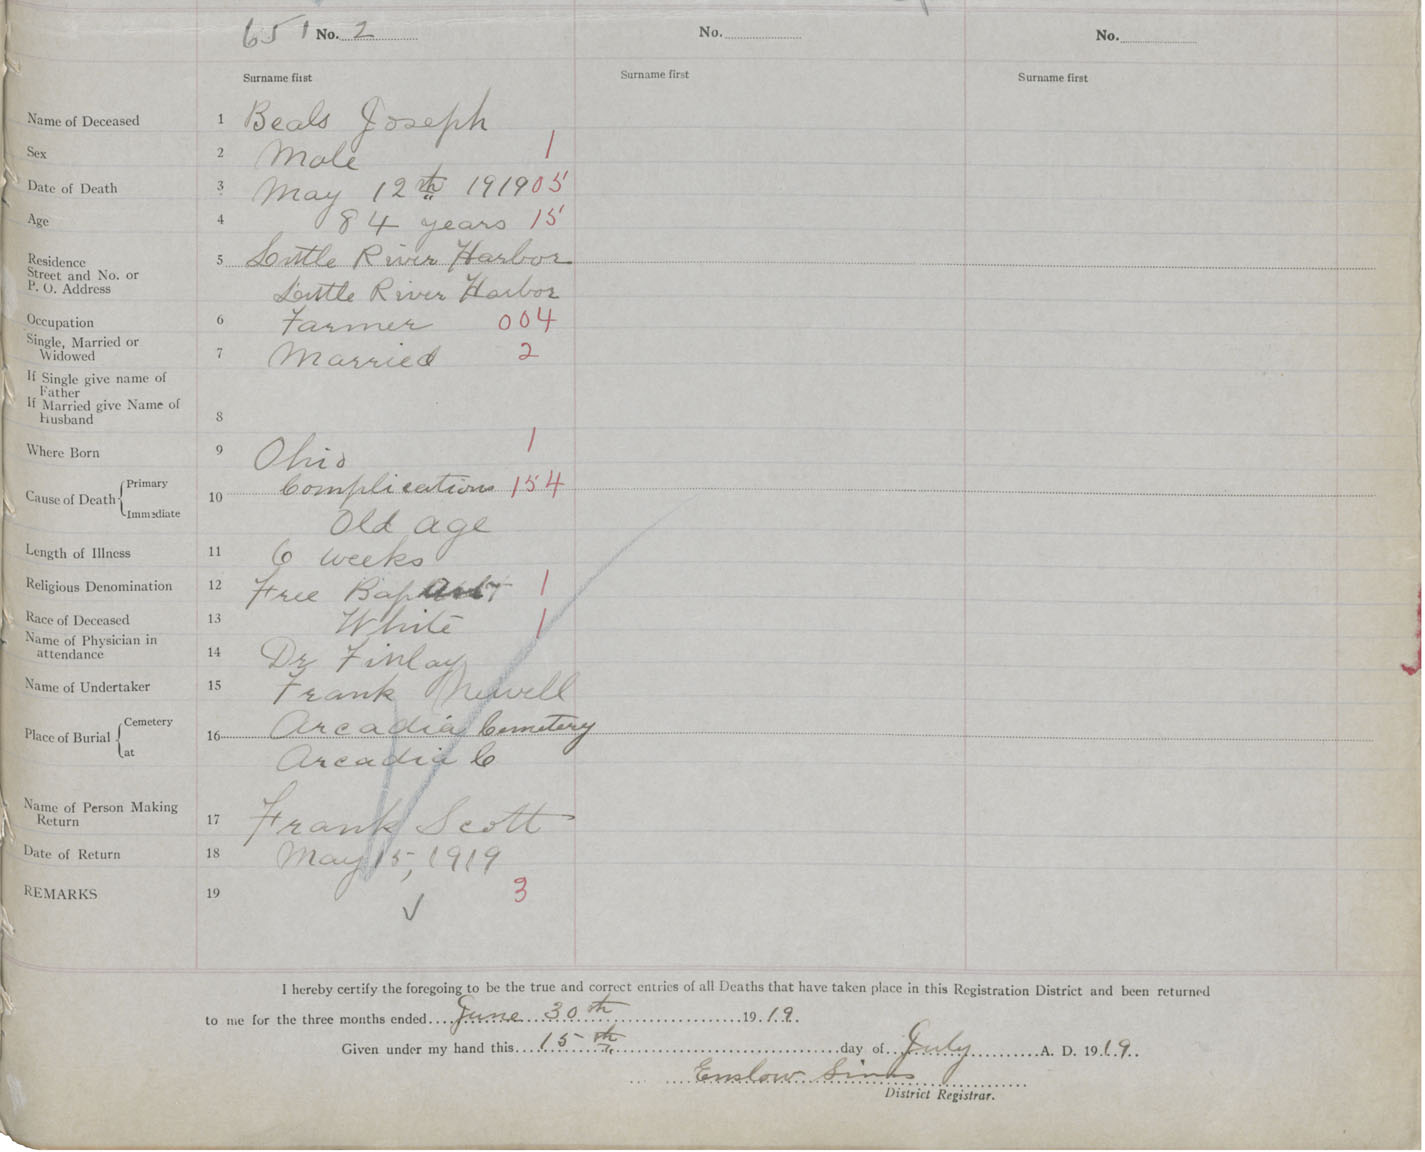 651 No. 2 No. No.
Surname first Surname first Surname first
Name of Deceased 1 Beals Joseph
Sex 2 Male 1
Date of Death 3 May 12th 1919 05
Age 4 84 years 15
Residence 5 Little River Harbor
Street and No. or
P. O. Address Little River Harbor
Occupation 6 Farmer 004
Single, Married or
Widowed 7 Married 2
If Single give name of
Father
If Married give Name of
Husband 8
Where Born 9 Ohio 1
Cause of Death Primary 10 Complications 154
Immediate Old age
Length of Illness 11 6 weeks
Religious Denomination 12 Free Baptist 1
Race of Deceased 13 White 1
Name of Physician in
attendance 14 Dr Finlay
Name of Undertaker 15 Frank Newell
Place of Burial Cemetery 16 Arcadia Cemetery
at Arcadia C
Name of Person Making
Return 17 Frank Scott
Date of Return 18 May 15, 1919
REMARKS 19 3
I hereby certify the foregoing to be the true and correct entries of all Deaths that have taken place in this Registration District and been returned
to me for the three months ended June 30th 1919.
Given under my hand this 15th day of July A. D. 1919.
Enslow Sims
District Registrar.